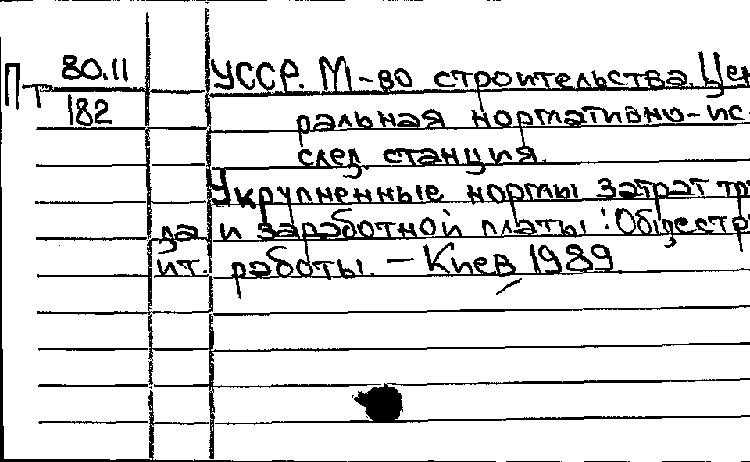 П-т 80.11
182
УССР. М-во строительства. Цен
ральная нормативно-ис
след. станция.
Укрупненные нормы затрат тру
да и заработной платы: Общестро
ит. работы. – Киев, 1989.